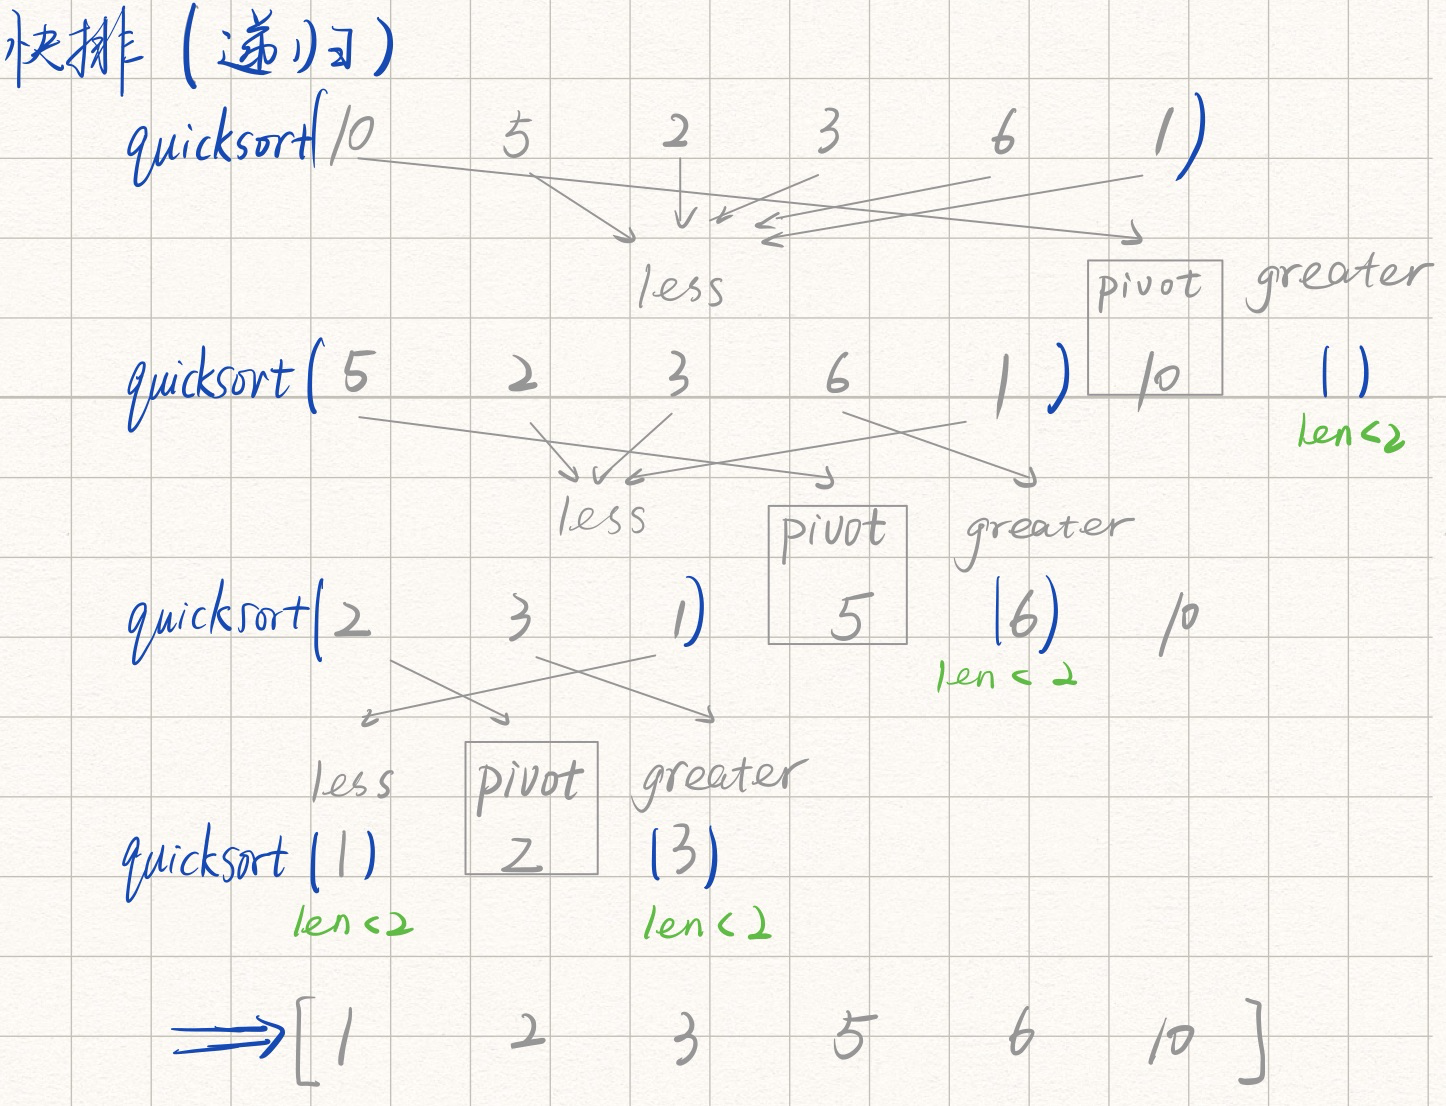 快排（递归）
quicksort(10 5 2 3 6 1)
less pivot greater
quicksort(5 2 3 6 1) 10 ()
len<2
less pivot greater
quicksort(2 3 1) 5 (6) 10
len<2
less pivot greater
quicksort(1) 2 (3)
len<2 len<2
⇒[1 2 3 5 6 10]